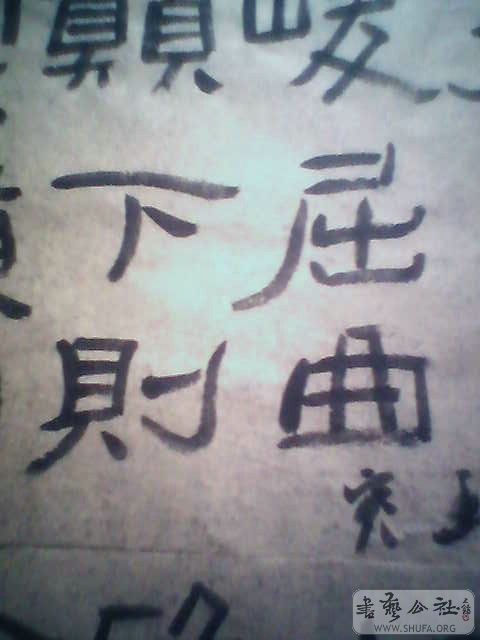 峻屈曲
顛下則
書藝公社
WWW.SHUFA.ORG